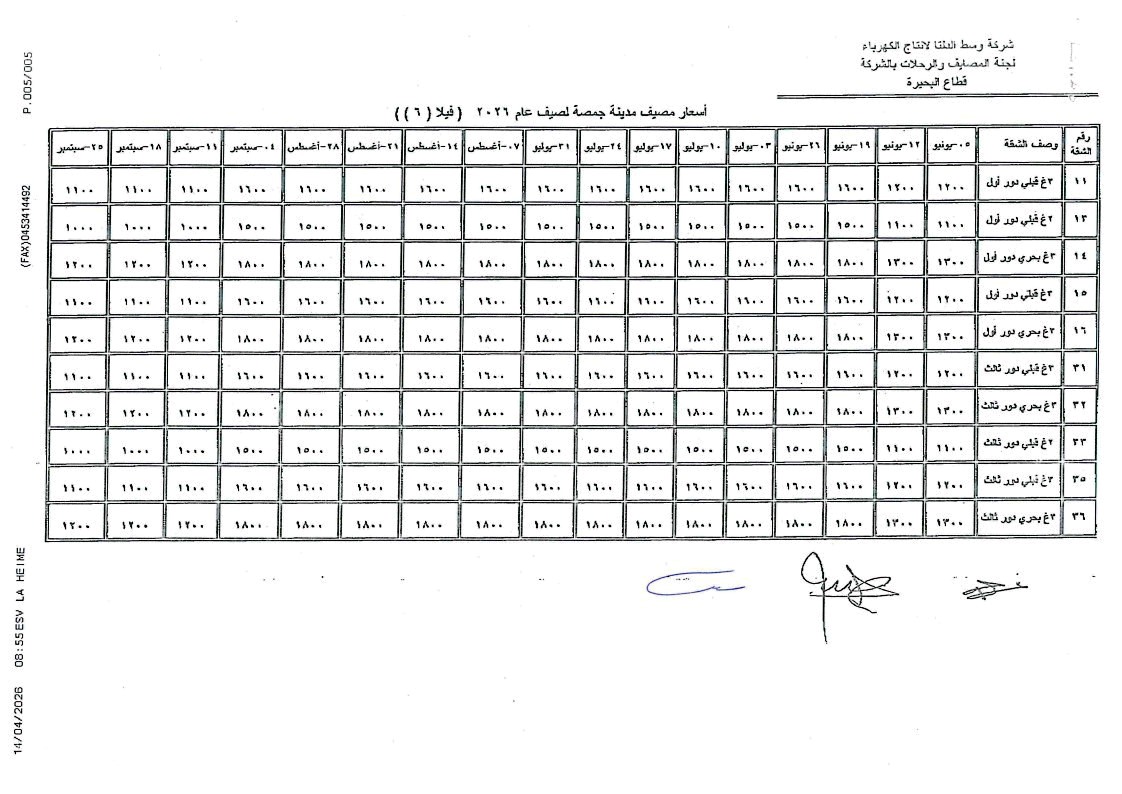 شركة وسط الدلتا لانتاج الكهرباء
لجنة المصايف والرحلات بالشركة
قطاع البحيرة
أسعار مصيف مدينة جمصة لصيف عام ٢٠٢٦ ( فيلا ( ٦ ) )
رقم الشقة وصف الشقة ٠٥-يونيو ١٢-يونيو ١٩-يونيو ٢٦-يونيو ٠٣-يوليو ١٠-يوليو ١٧-يوليو ٢٤-يوليو ٣١-يوليو ٠٧-أغسطس ١٤-أغسطس ٢١-أغسطس ٢٨-أغسطس ٠٤-سبتمبر ١١-سبتمبر ١٨-سبتمبر ٢٥-سبتمبر
١١ ٣غ قبلي دور أول ١٢٠٠ ١٢٠٠ ١٦٠٠ ١٦٠٠ ١٦٠٠ ١٦٠٠ ١٦٠٠ ١٦٠٠ ١٦٠٠ ١٦٠٠ ١٦٠٠ ١٦٠٠ ١٦٠٠ ١٦٠٠ ١١٠٠ ١١٠٠ ١١٠٠
١٣ ٢غ قبلي دور أول ١١٠٠ ١١٠٠ ١٥٠٠ ١٥٠٠ ١٥٠٠ ١٥٠٠ ١٥٠٠ ١٥٠٠ ١٥٠٠ ١٥٠٠ ١٥٠٠ ١٥٠٠ ١٥٠٠ ١٥٠٠ ١٠٠٠ ١٠٠٠ ١٠٠٠
١٤ ٣غ بحري دور أول ١٣٠٠ ١٣٠٠ ١٨٠٠ ١٨٠٠ ١٨٠٠ ١٨٠٠ ١٨٠٠ ١٨٠٠ ١٨٠٠ ١٨٠٠ ١٨٠٠ ١٨٠٠ ١٨٠٠ ١٨٠٠ ١٢٠٠ ١٢٠٠ ١٢٠٠
١٥ ٣غ قبلي دور أول ١٢٠٠ ١٢٠٠ ١٦٠٠ ١٦٠٠ ١٦٠٠ ١٦٠٠ ١٦٠٠ ١٦٠٠ ١٦٠٠ ١٦٠٠ ١٦٠٠ ١٦٠٠ ١٦٠٠ ١٦٠٠ ١١٠٠ ١١٠٠ ١١٠٠
١٦ ٣غ بحري دور أول ١٣٠٠ ١٣٠٠ ١٨٠٠ ١٨٠٠ ١٨٠٠ ١٨٠٠ ١٨٠٠ ١٨٠٠ ١٨٠٠ ١٨٠٠ ١٨٠٠ ١٨٠٠ ١٨٠٠ ١٨٠٠ ١٢٠٠ ١٢٠٠ ١٢٠٠
٣١ ٣غ قبلي دور ثالث ١٢٠٠ ١٢٠٠ ١٦٠٠ ١٦٠٠ ١٦٠٠ ١٦٠٠ ١٦٠٠ ١٦٠٠ ١٦٠٠ ١٦٠٠ ١٦٠٠ ١٦٠٠ ١٦٠٠ ١٦٠٠ ١١٠٠ ١١٠٠ ١١٠٠
٣٢ ٣غ بحري دور ثالث ١٣٠٠ ١٣٠٠ ١٨٠٠ ١٨٠٠ ١٨٠٠ ١٨٠٠ ١٨٠٠ ١٨٠٠ ١٨٠٠ ١٨٠٠ ١٨٠٠ ١٨٠٠ ١٨٠٠ ١٨٠٠ ١٢٠٠ ١٢٠٠ ١٢٠٠
٣٣ ٢غ قبلي دور ثالث ١١٠٠ ١١٠٠ ١٥٠٠ ١٥٠٠ ١٥٠٠ ١٥٠٠ ١٥٠٠ ١٥٠٠ ١٥٠٠ ١٥٠٠ ١٥٠٠ ١٥٠٠ ١٥٠٠ ١٥٠٠ ١٠٠٠ ١٠٠٠ ١٠٠٠
٣٥ ٣غ قبلي دور ثالث ١٢٠٠ ١٢٠٠ ١٦٠٠ ١٦٠٠ ١٦٠٠ ١٦٠٠ ١٦٠٠ ١٦٠٠ ١٦٠٠ ١٦٠٠ ١٦٠٠ ١٦٠٠ ١٦٠٠ ١٦٠٠ ١١٠٠ ١١٠٠ ١١٠٠
٣٦ ٣غ بحري دور ثالث ١٣٠٠ ١٣٠٠ ١٨٠٠ ١٨٠٠ ١٨٠٠ ١٨٠٠ ١٨٠٠ ١٨٠٠ ١٨٠٠ ١٨٠٠ ١٨٠٠ ١٨٠٠ ١٨٠٠ ١٨٠٠ ١٢٠٠ ١٢٠٠ ١٢٠٠
14/04/2026 08:55 ESV LA HEIME (FAX)0453414492 P.005/005